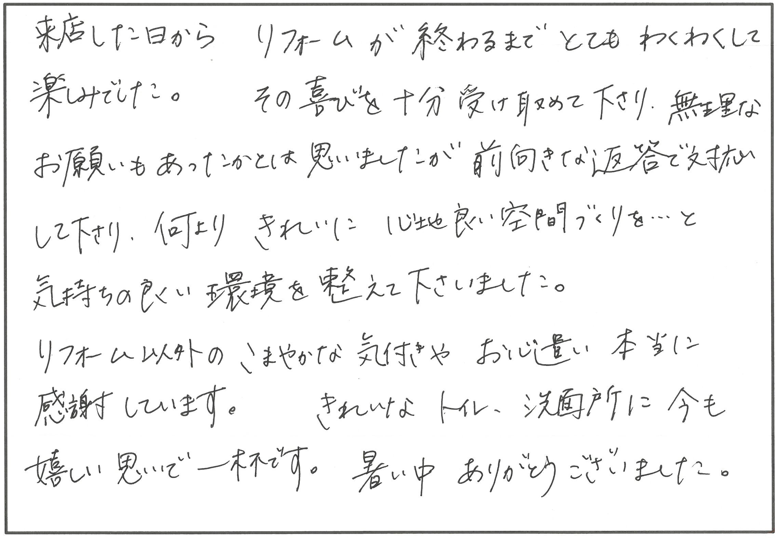 来店した日から リフォームが終わるまで とても わくわくして
楽しみでした。 その喜びを十分受け取めて下さり、無理な
お願いもあったかとは思いましたが前向きな返答で対応
して下さり、何より きれいに 心地良い空間づくりを…と
気持ちの良い環境を整えて下さいました。
リフォーム以外の こまやかな気付きや お心遣い 本当に
感謝しています。 きれいなトイレ、洗面所に今も
嬉しい思いで一杯です。 暑い中 ありがとうございました。